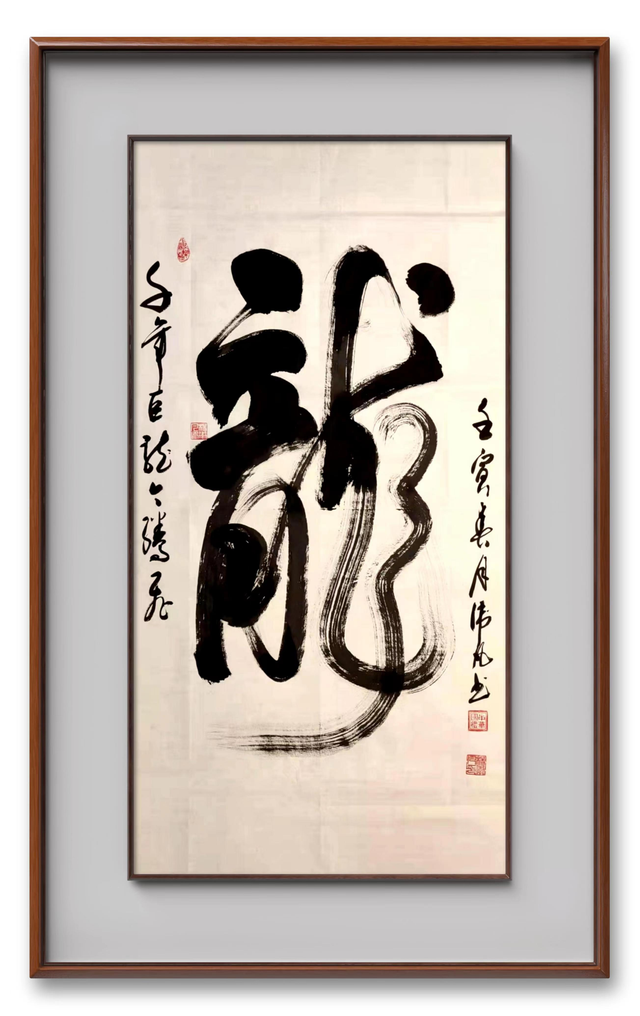 龍
千年巨龍今騰飛
壬寅春月